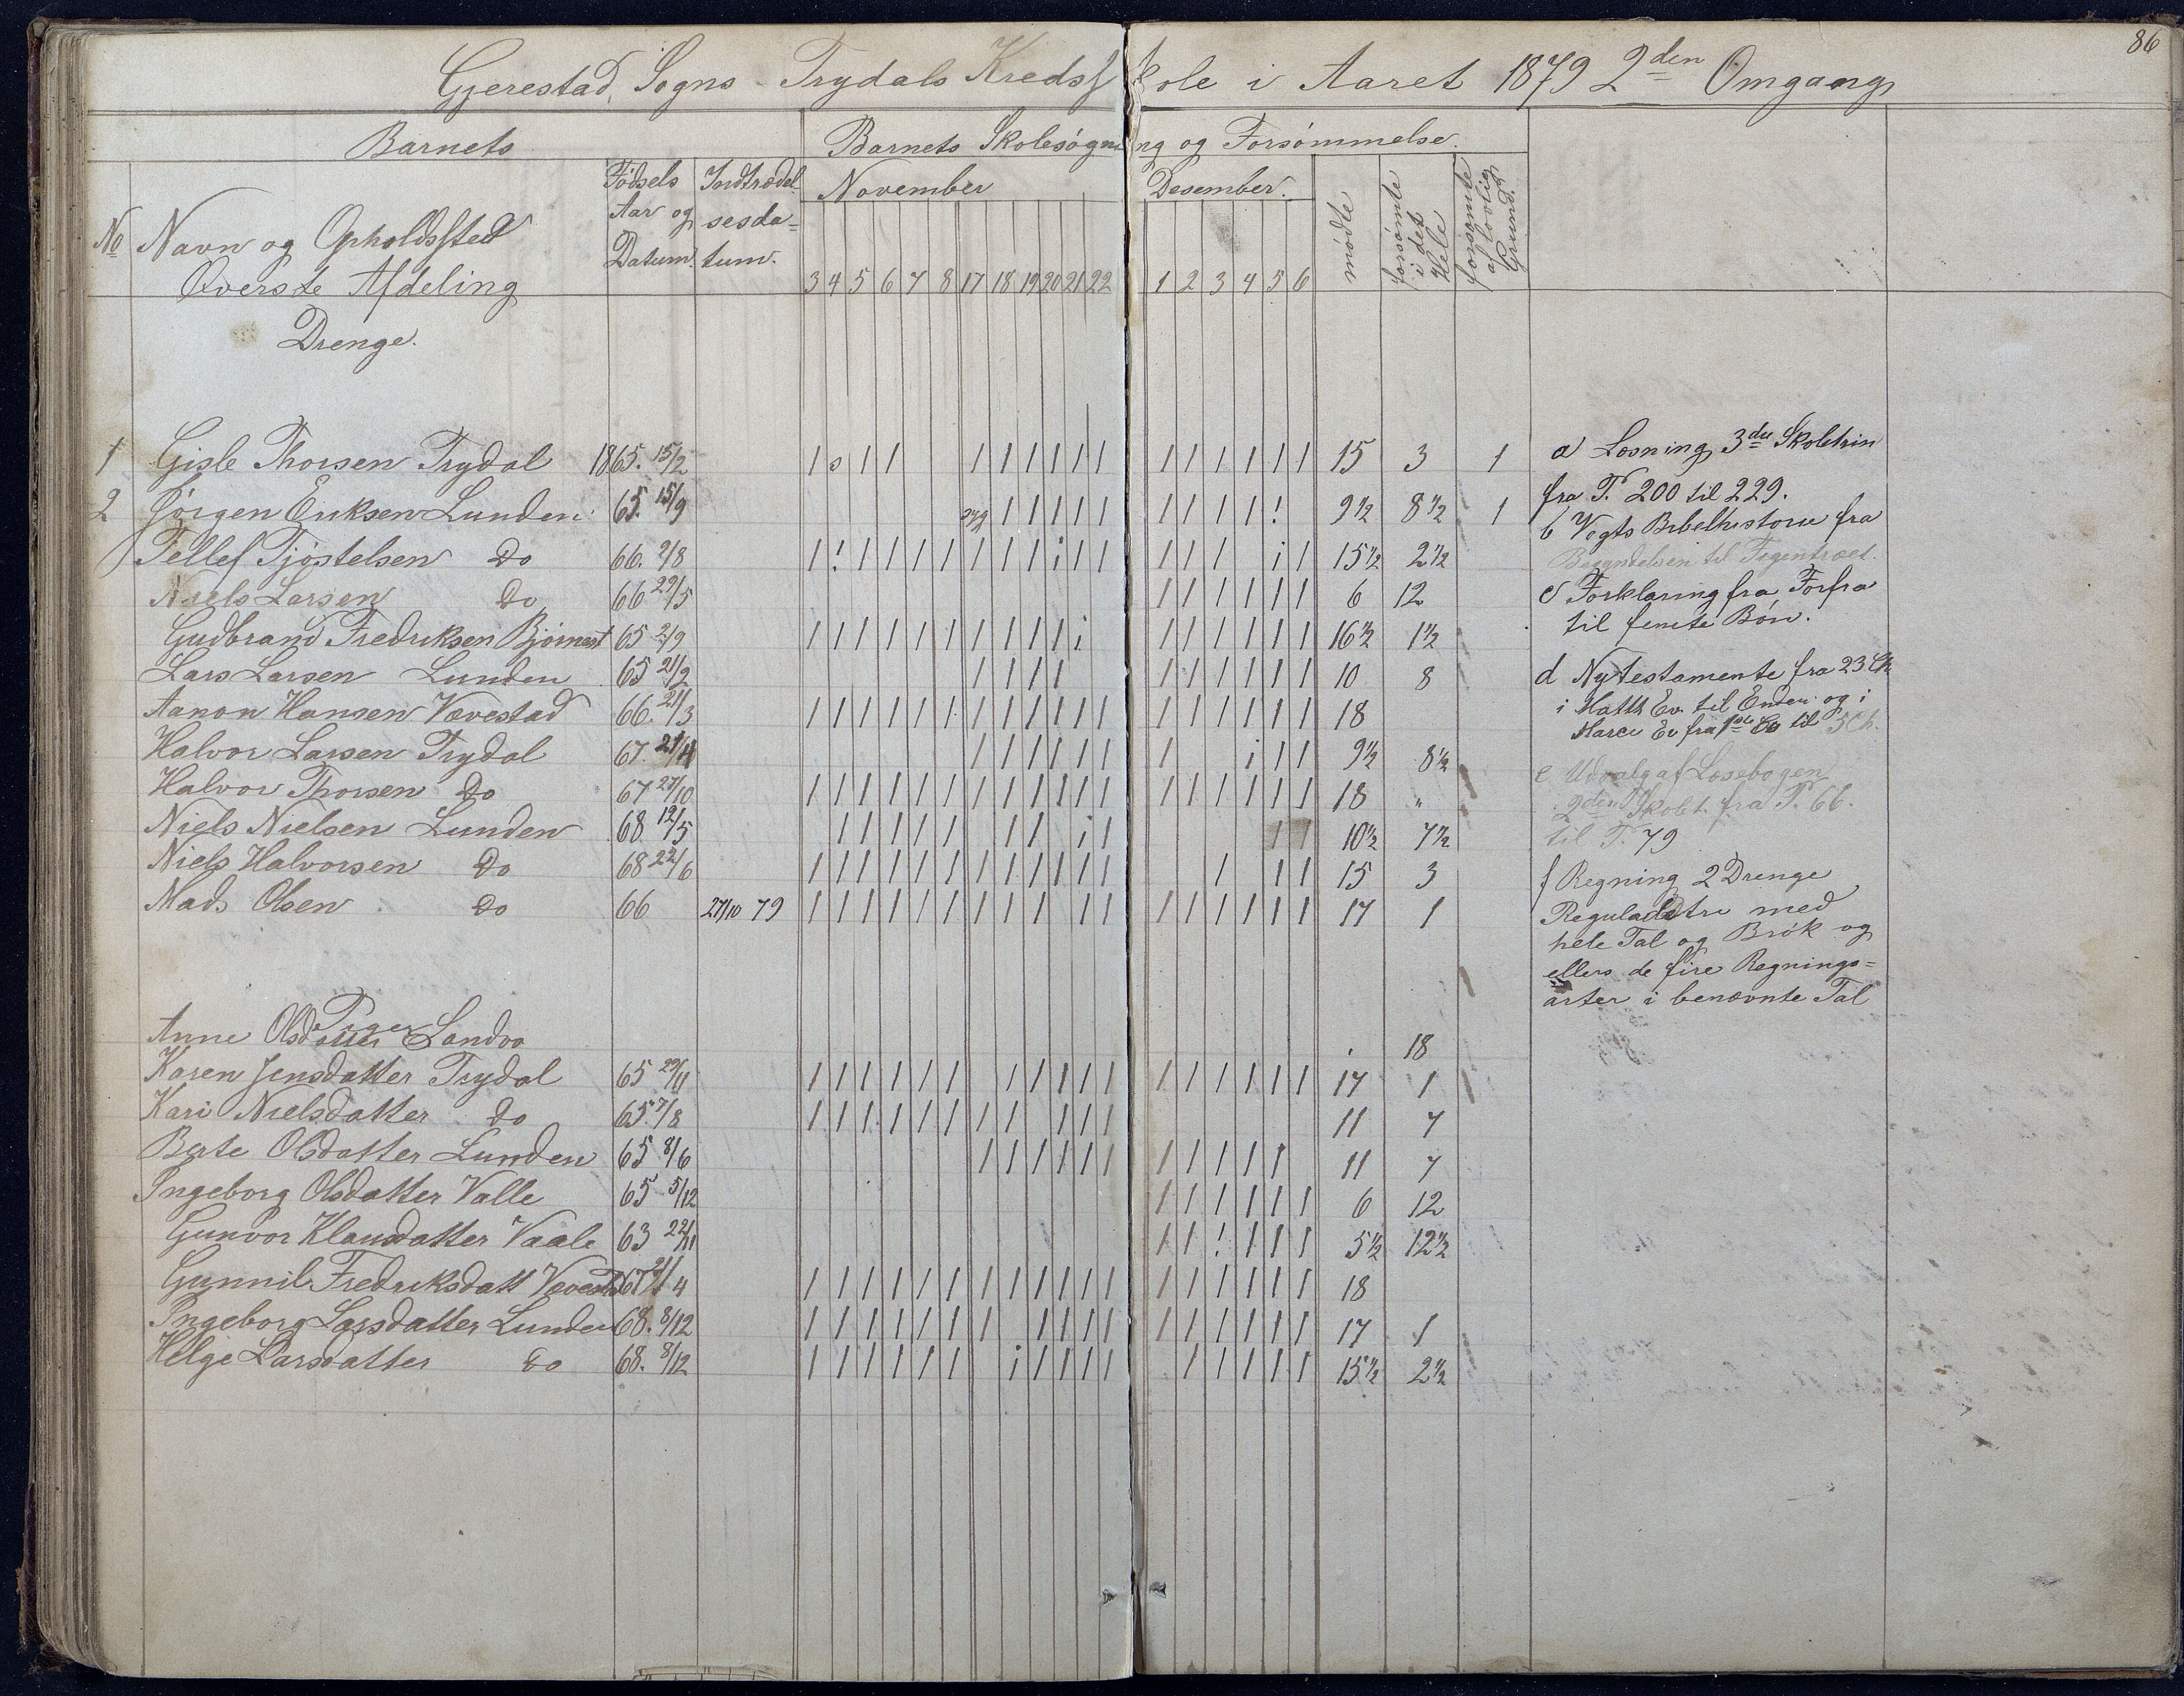 86
Gjerestad Sogns Trydals Kredsskole i Aaret 1879 2den Omgang
Barnets
Barnets Skolesøgning og Forsømmelse.
No
Navn og Opholdssted
Øverste Afdeling
Drenge.
Fødsels Aar og Datum.
Indtrædelsesdatum.
November
3 4 5 6 7 8 17 18 19 20 21 22
Desember.
1 2 3 4 5 6
mødte
forsømte i det Hele
forsømte af lovlig Grund.
1 Gisle Thorsen Trydal 1865. 15/2 1 s 1 1 1 1 1 1 1 1 1 1 1 1 1 1 15 3 1
2 Jørgen Eriksen Lunden 65. 15/9 syg 1 1 1 1 1 1 1 1 1 ! 9½ 8½ 1
Tellef Tjøstelsen Do 66. 2/8 1 ! 1 1 1 1 1 1 1 i 1 1 1 1 1 i 1 15½ 2½
Niels Larsen Do 66 29/5 1 1 1 1 1 1 6 12
Gudbrand Fredriksen Bjørnest 65 2/9 1 1 1 1 1 1 1 1 1 1 i 1 1 1 1 1 1 16½ 1½
Lars Larsen Lunden 65 21/2 1 1 1 1 1 1 1 1 1 1 10 8
Aanon Hansen Vævestad 66. 21/3 1 1 1 1 1 1 1 1 1 1 1 1 1 1 1 1 1 1 18
Halvor Larsen Trydal 67. 21/11 1 1 1 1 1 1 1 i 1 1 9½ 8½
Halvor Thorsen Do 67 27/10 1 1 1 1 1 1 1 1 1 1 1 1 1 1 1 1 1 1 18 "
Niels Nielsen Lunden 68 12/5 1 1 1 1 1 1 1 i 1 1 1 10½ 7½
Niels Halvorsen Do 68 22/6 1 1 1 1 1 1 1 1 1 1 1 1 1 1 1 15 3
Mads Olsen Do 66 27/10 79 1 1 1 1 1 1 1 1 1 1 1 1 1 1 1 1 1 17 1
Piger
Anne Olsdatter Landva 18
Karen Jensdatter Trydal 65 29/11 1 1 1 1 1 1 1 1 1 1 1 1 1 1 1 1 1 17 1
Kari Nielsdatter Do 65. 7/8 1 1 1 1 1 1 1 1 1 1 1 11 7
Bate Olsdatter Lunden 65 8/6 1 1 1 1 1 1 1 1 1 1 1 11 7
Ingeborg Olsdatter Valle 65 5/12 1 1 1 1 1 1 6 12
Gunvor Klausdatter Vaale 63 22/11 1 1 ! 1 1 1 5½ 12½
Gunnil Fredriksdatt Vævestad 67 21/4 1 1 1 1 1 1 1 1 1 1 1 1 1 1 1 1 1 1 18
Ingeborg Larsdatter Lunden 68. 8/12 1 1 1 1 1 1 1 1 1 1 1 1 1 1 1 1 1 17 1
Helge Larsdatter Do 68. 8/12 1 1 1 1 1 1 i 1 1 1 1 1 1 1 1 1 15½ 2½
a Læsning 3die Skoletrin
fra P. 200 til 229.
b Vogts Bibelhistorie fra
Begyndelsen til Figentræet.
c Forklaring fra Forfra
til femte Bøn.
d Nytestamente fra 23 Ch
i Matth Ev. til Enden og i
Marci Ev fra 1ste Ch til 5 Ch.
e Udvalg af Læsebogen
2den Skolet. fra P. 66.
til P. 79
f Regning 2 Drenge
Reguladetri med
hele Tal og Brøk og
ellers de fire Regnings=
arter i benævnte Tal